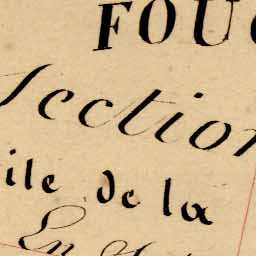 FOUG
Section
ile de la
En